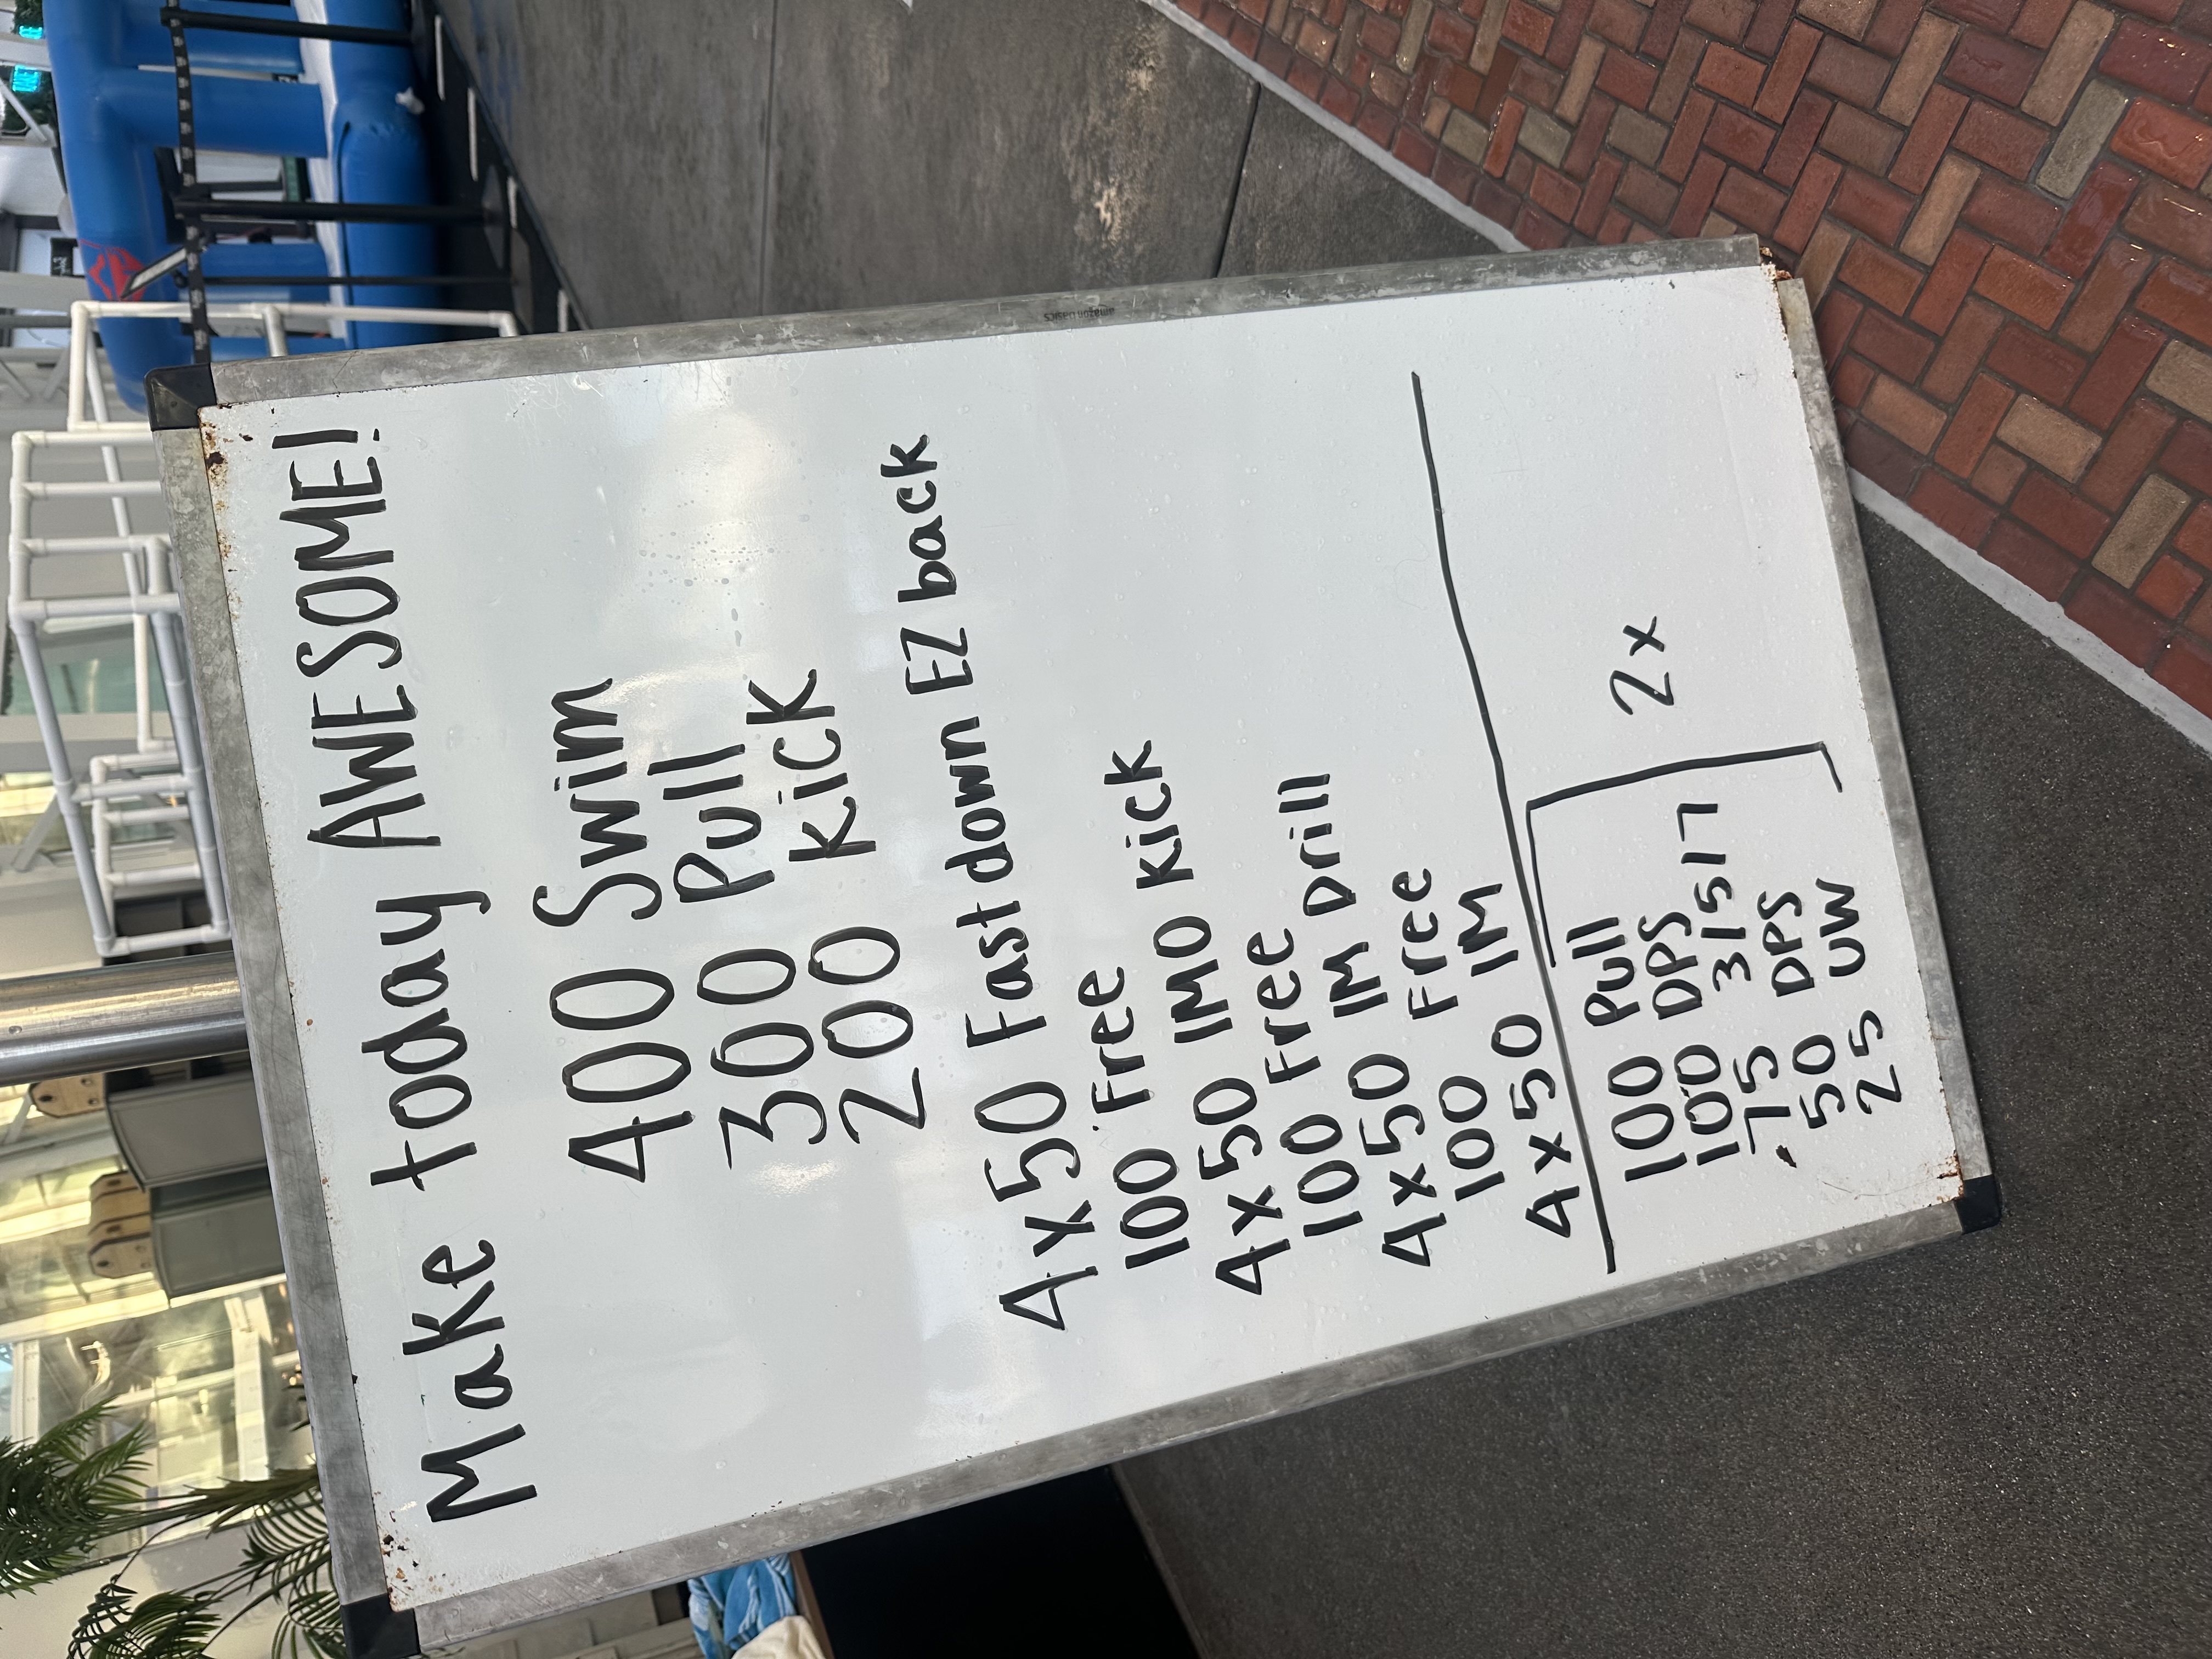 Make today AWESOME!
400 Swim
300 Pull
200 Kick
4x50 Fast down EZ back
100 Free
4x50 IMO Kick
100 Free
4x50 IM Drill
100 Free
4x50 IM
100 Pull
100 DPS
75 3/5/7
50 DPS
25 UW
2x
amazon basics